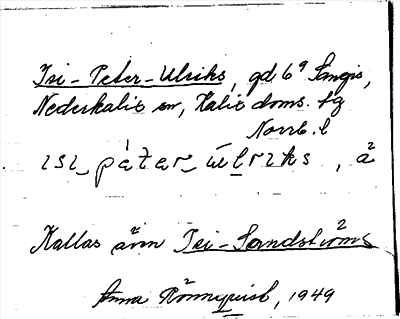 Isi-Peter-Ulriks, gd 6⁹ Sangis,
Nederkalix sn, Kalix doms. tg
Norrb. l
ısı_pätər_ùlrıks , å
Kallas även Isi-Sandströms
Anna Rönnquist, 1949